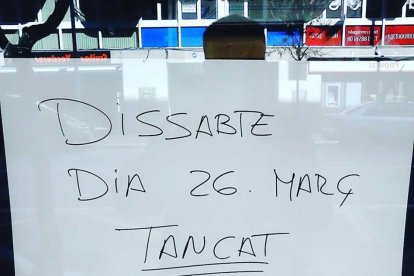 DISSABTE
DIA 26. MARÇ
TANCAT